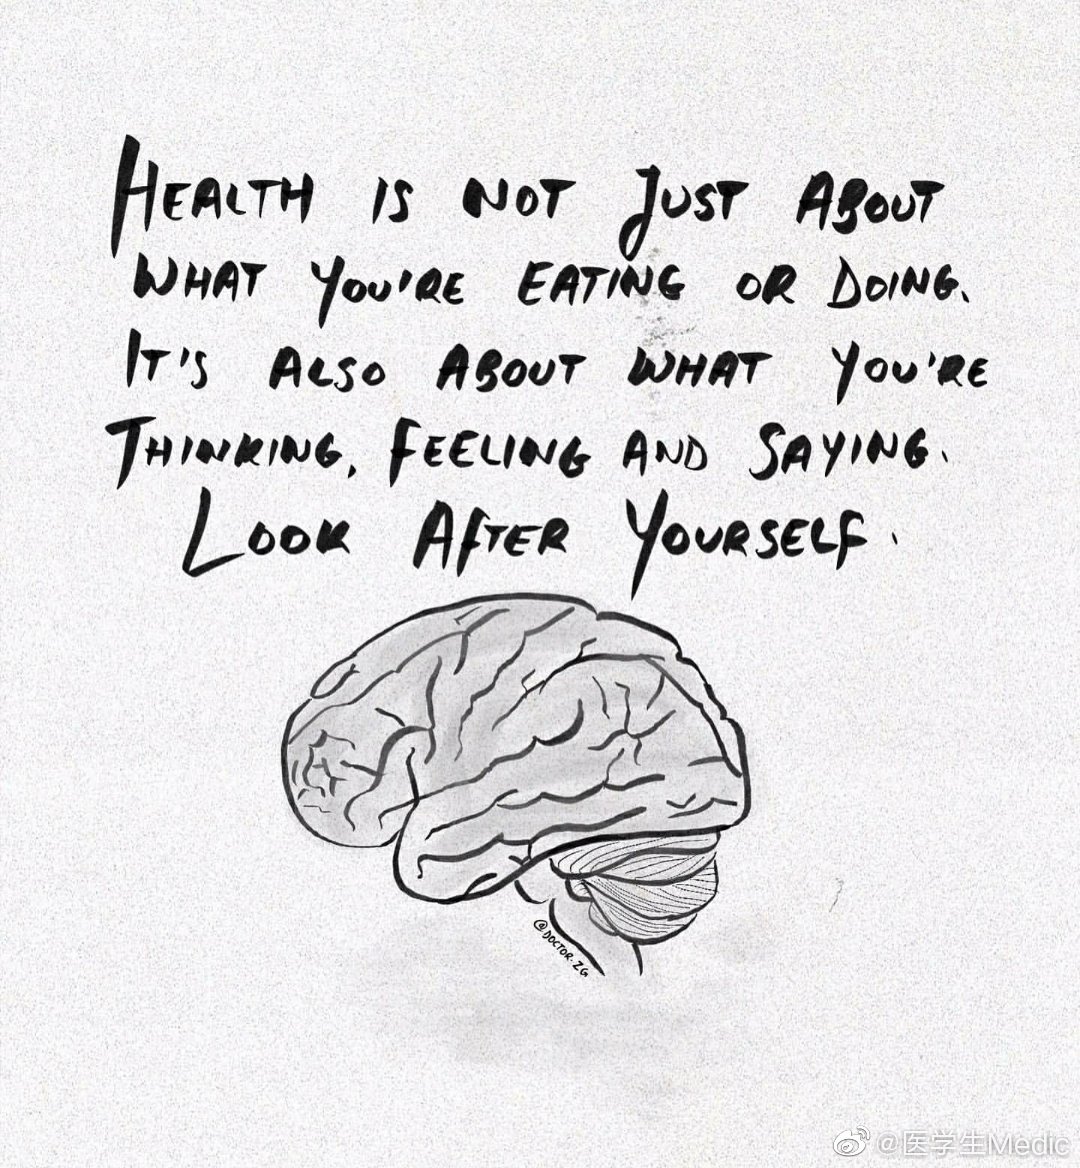 HEALTH IS NOT JUST ABOUT
WHAT YOU'RE EATING OR DOING.
IT'S ALSO ABOUT WHAT YOU'RE
THINKING, FEELING AND SAYING.
LOOK AFTER YOURSELF.
@DOCTOR.ZG
@医学生Medic